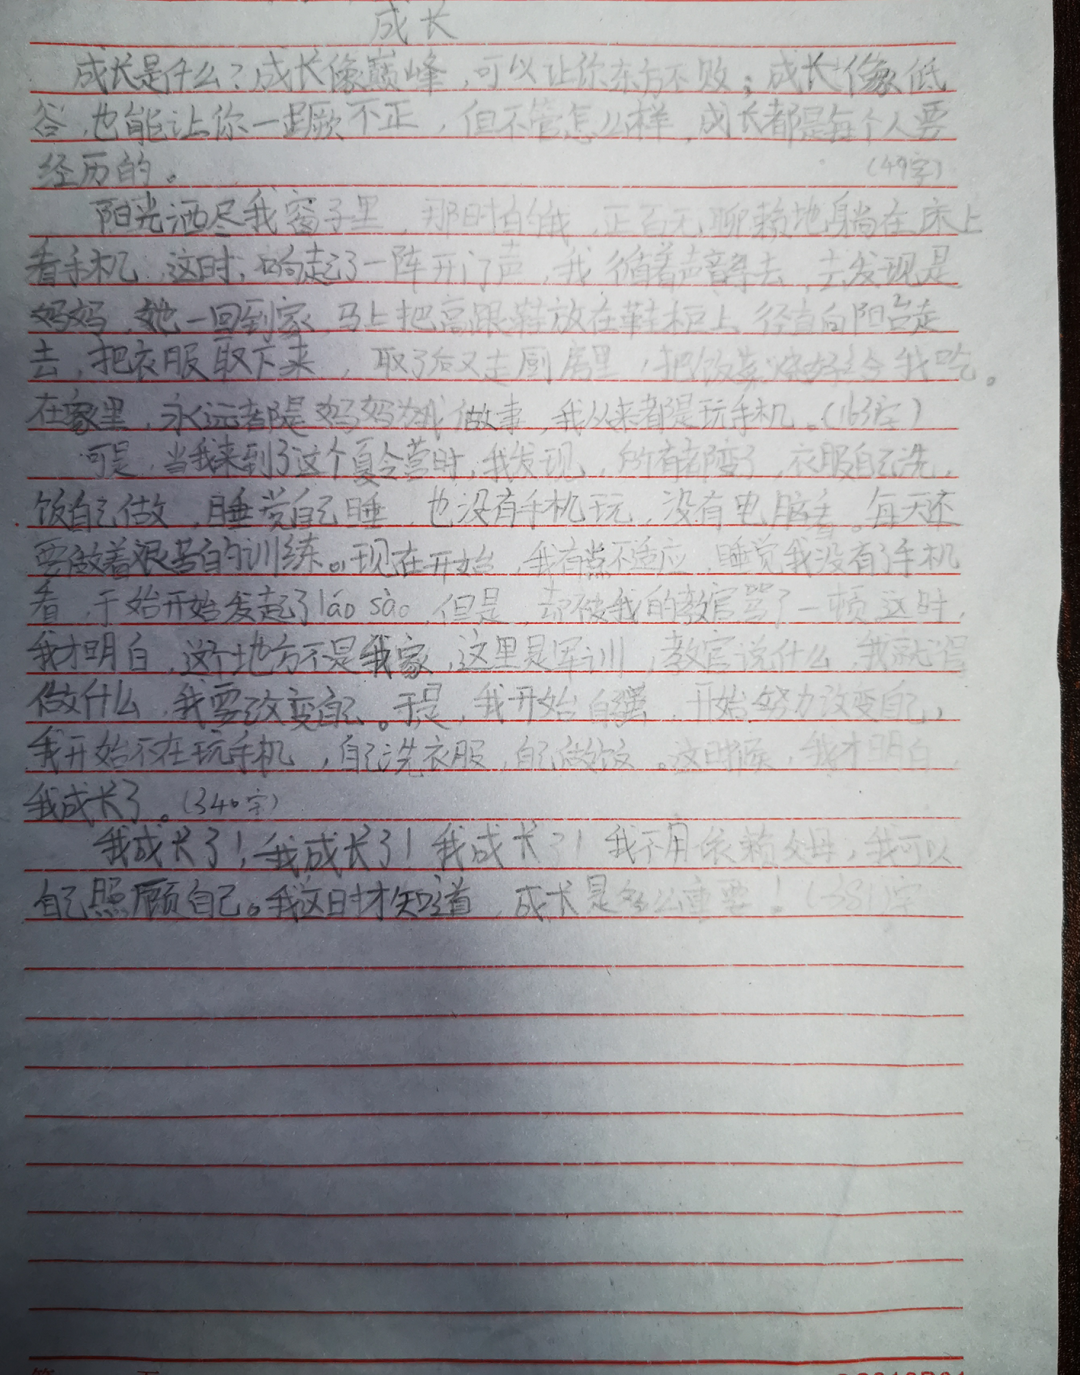 成长
成长是什么？成长像巅峰，可以让你东方不败；成长像低
谷，也能让你一蹶不正，但不管怎么样，成长都是每个人要
经历的。(49字)
阳光洒尽我窗子里，那时的我，正百无聊赖地躺在床上
看手机，这时，响起了一阵开门声，我循着声音寻去，去发现是
妈妈，她一回到家，马上把高跟鞋放在鞋柜上，径直向阳台走
去，把衣服取下来，取了后又走厨房里，把饭菜烧好给我吃。
在家里，永远都是妈妈为我做事，我从来都是玩手机。(163字)
可是，当我来到了这个夏令营时，我发现，所有都变了，衣服自己洗，
饭自己做，睡觉自己睡，也没有手机玩，没有电脑看。每天还
要做着很苦的训练。现在开始，我有点不适应，睡觉我没有了手机
看，于始开始发起了láo sāo，但是，却被我的教官骂了一顿，这时，
我才明白，这个地方不是我家，这里是军训，教官说什么，我就得
做什么，我要改变自己。于是，我开始自强，开始努力改变自己，
我开始不在玩手机，自己洗衣服，自己做饭。这时候，我才明白，
我成长了。(340字)
我成长了！我成长了！我成长了！我不用依赖父母，我可以
自己照顾自己。我这时才知道，成长是多么重要！